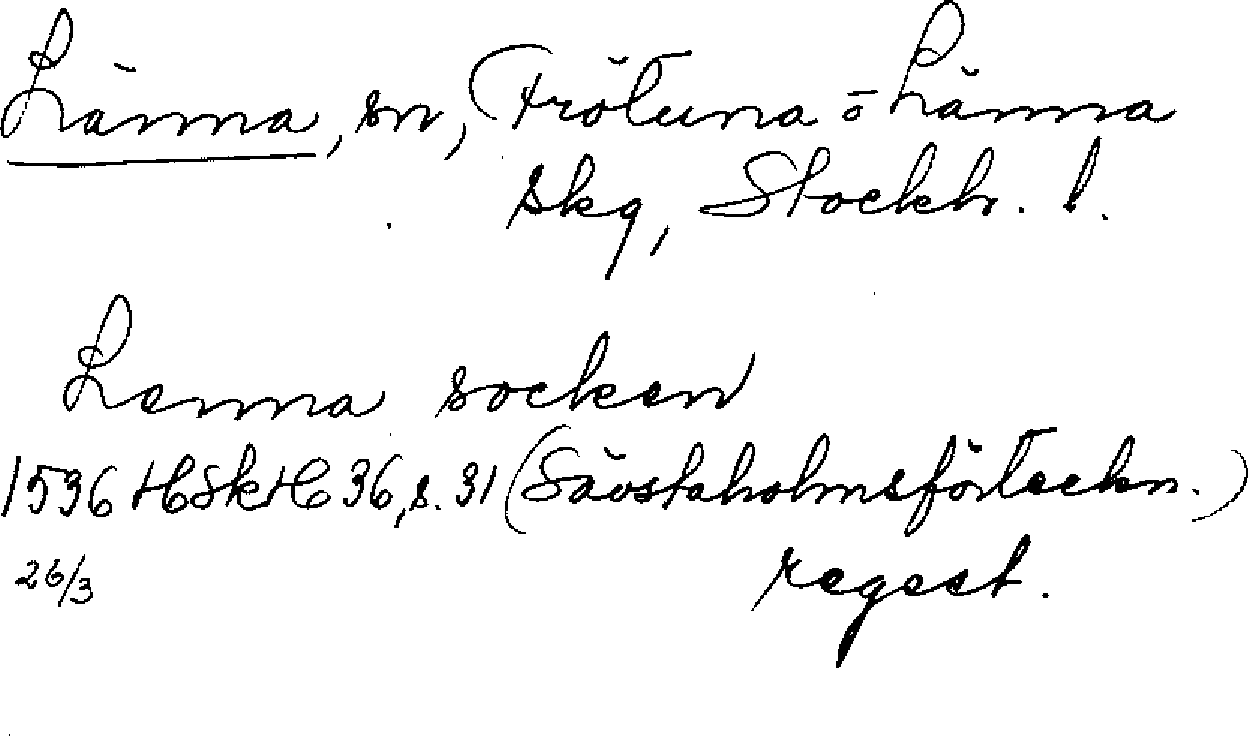 Länna, sn, Frötuna o Länna
skg, Stockh. l.
Lenna socken
1536 HSkH 36, s. 31 (Sävstaholmsförteckn.)
26/3 regest.